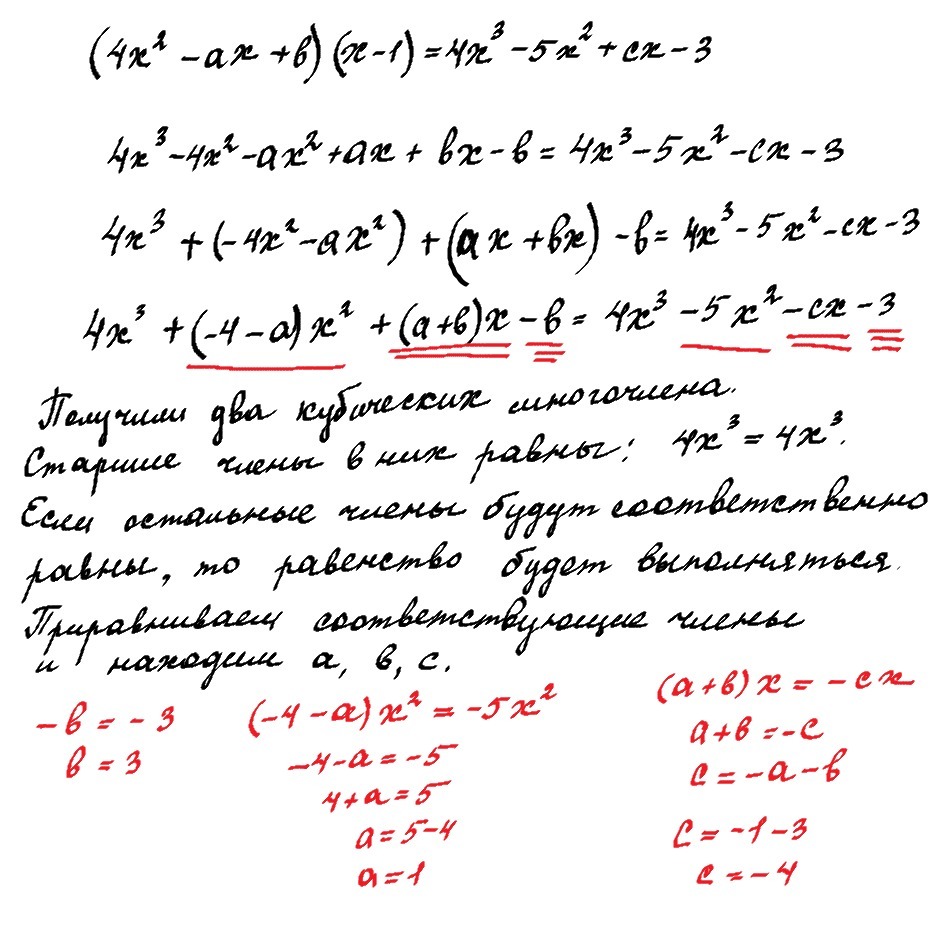 (4x² - ax + b)(x - 1) = 4x³ - 5x² + cx - 3
4x³ - 4x² - ax² + ax + bx - b = 4x³ - 5x² - cx - 3
4x³ + (-4x² - ax²) + (ax + bx) - b = 4x³ - 5x² - cx - 3
4x³ + (-4 - a)x² + (a + b)x - b = 4x³ - 5x² - cx - 3
Получили два кубических многочлена.
Старшие члены в них равны: 4x³ = 4x³.
Если остальные члены будут соответственно
равны, то равенство будет выполняться.
Приравниваем соответствующие члены
и находим a, b, c.
-b = -3
b = 3
(-4 - a)x² = -5x²
-4 - a = -5
4 + a = 5
a = 5 - 4
a = 1
(a + b)x = -cx
a + b = -c
c = -a - b
c = -1 - 3
c = -4